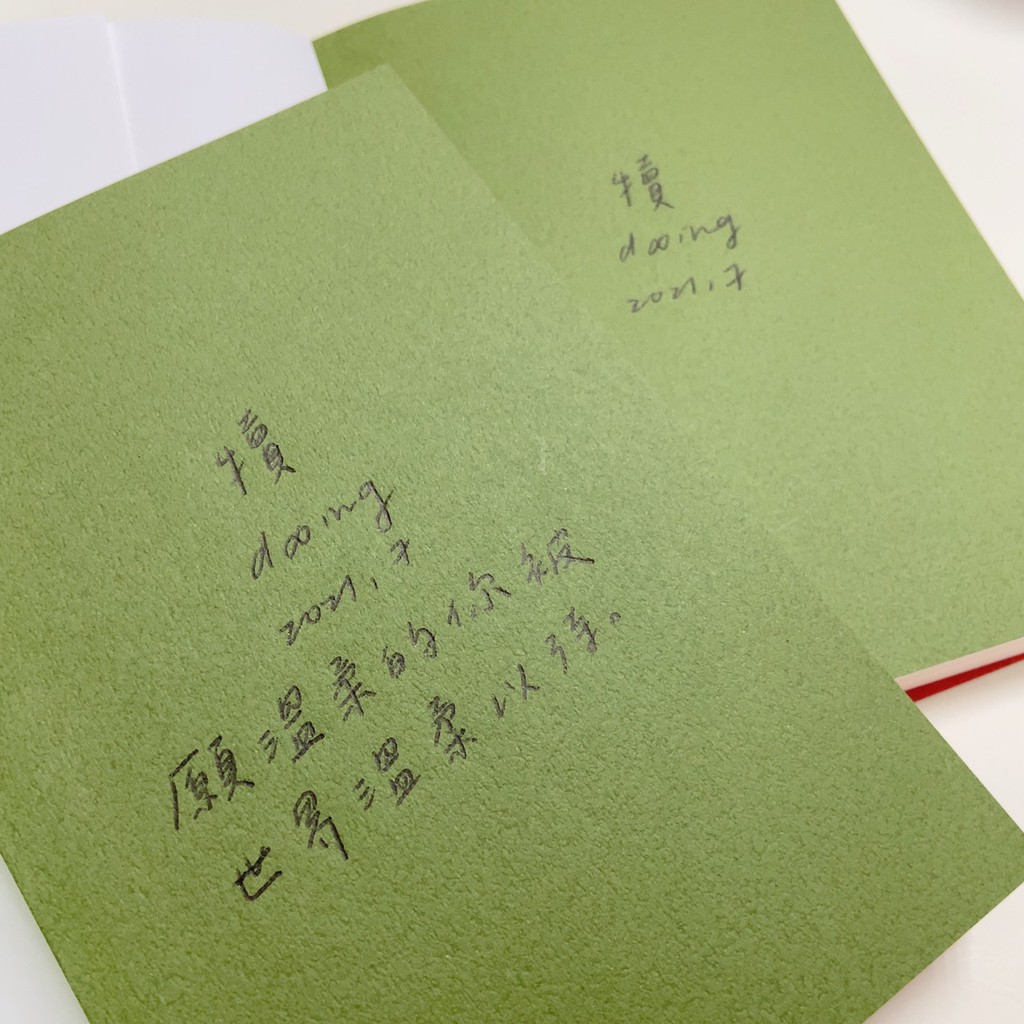 犢
dooing
2021.7
犢
dooing
2021.7
願溫柔的你被
世界溫柔以待。